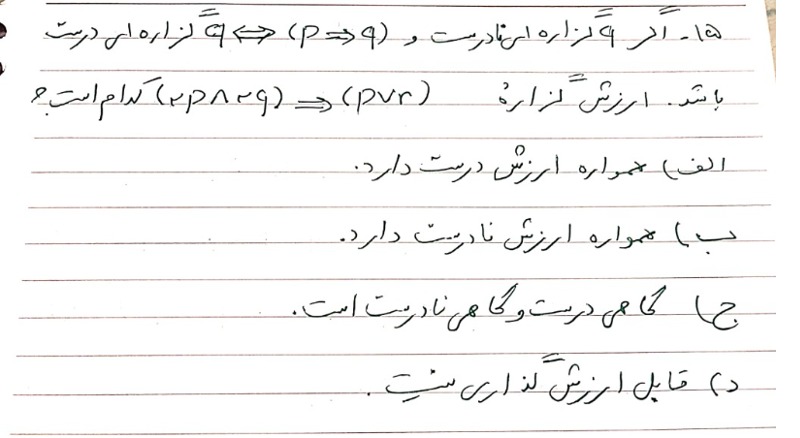 ۱۵- اگر q گزاره ای نادرست و (p ⇒ q) ⇔ q گزاره ای درست
باشد. ارزش گزارهٔ (~p ∧ ~q) ⇒ (p ∨ r) کدام است؟
الف) همواره ارزش درست دارد.
ب) همواره ارزش نادرست دارد.
ج) گاهی درست و گاهی نادرست است.
د) قابل ارزش گذاری نیست.